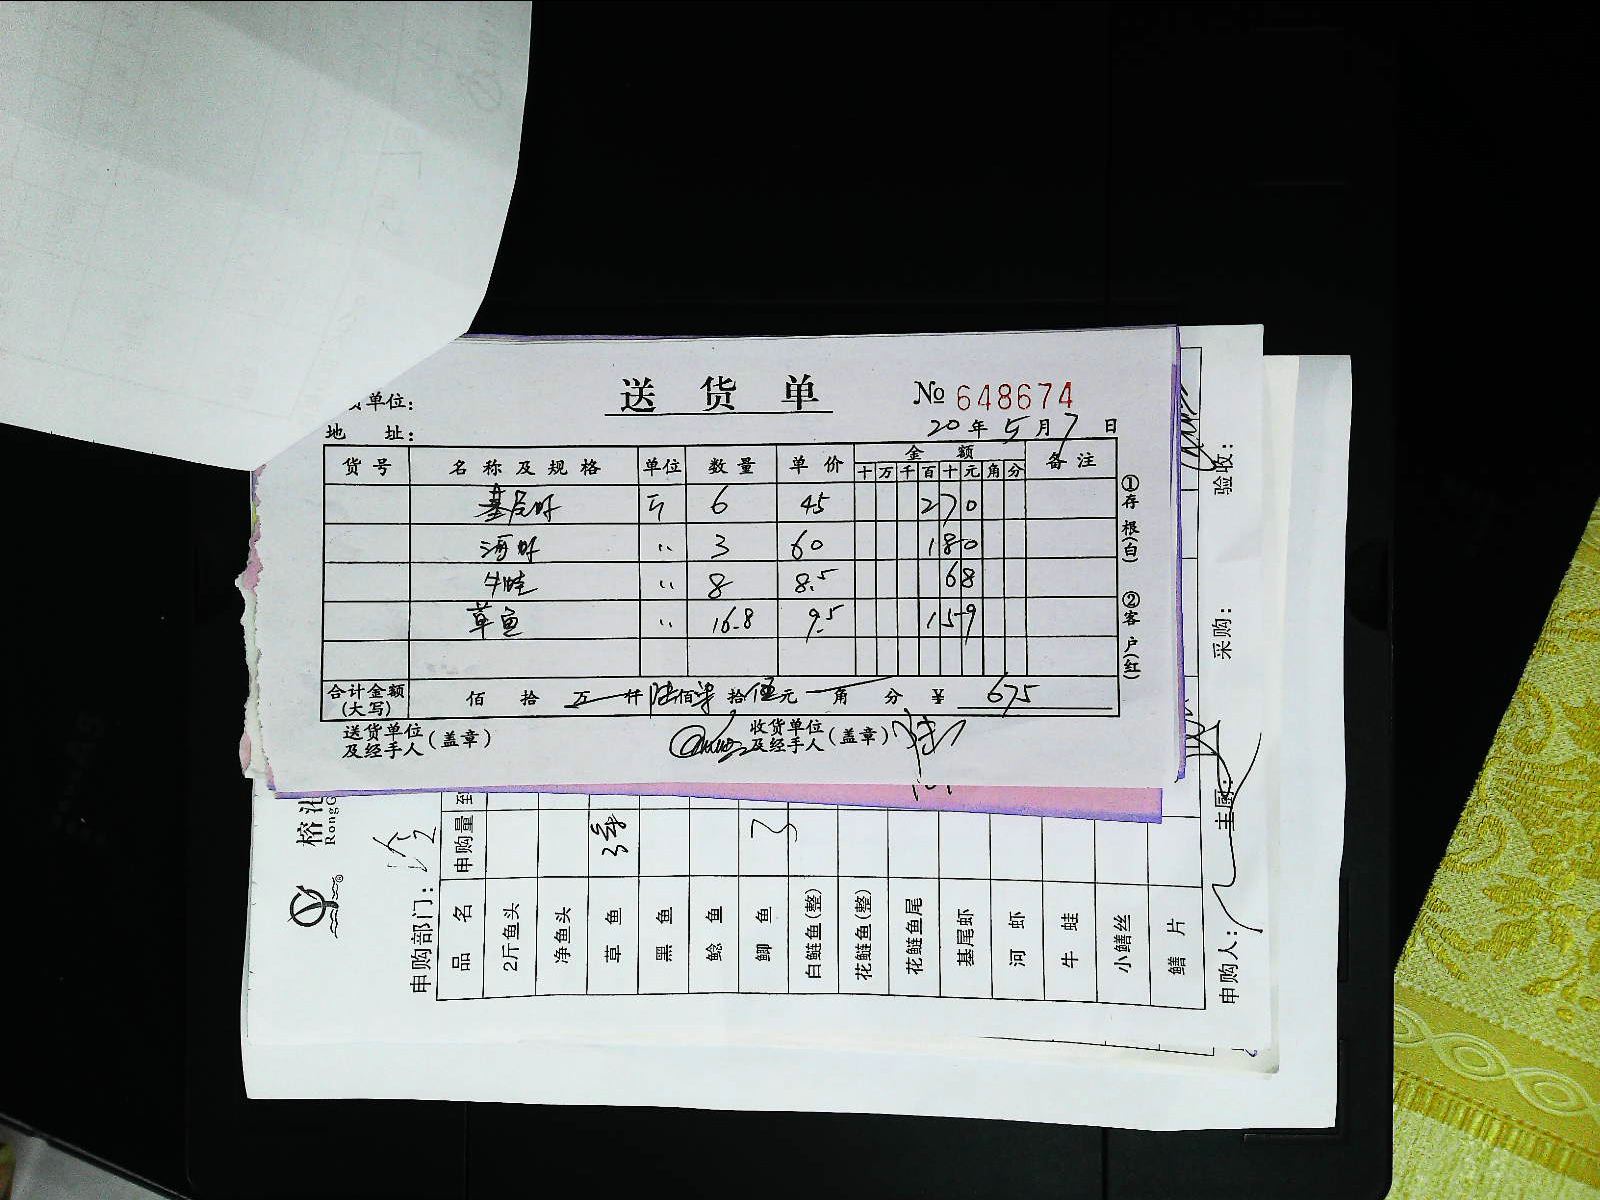 单位:
送货单
№ 648674
地 址:
20年5月7日
货号 名称及规格 单位 数量 单价 金额 备注
十 万 千 百 十 元 角 分
基尾虾 斤 6 45 270
河虾 〃 3 60 180
牛蛙 〃 8 8.5 68
草鱼 〃 16.8 9.5 159
合计金额(大写) 佰 拾 万 仟 陆佰柒拾伍元 角 分 ¥ 675
送货单位及经手人(盖章)
收货单位及经手人(盖章)
①存根(白)
②客户(红)
榕
RongG
申购部门:
品名 申购量
2斤鱼头
净鱼头
草鱼
黑鱼
鲶鱼
鲫鱼
白鲢鱼(整)
花鲢鱼(整)
花鲢鱼尾
基尾虾
河虾
牛蛙
小鳝丝
鳝片
申购人:
主厨:
采购:
验收: